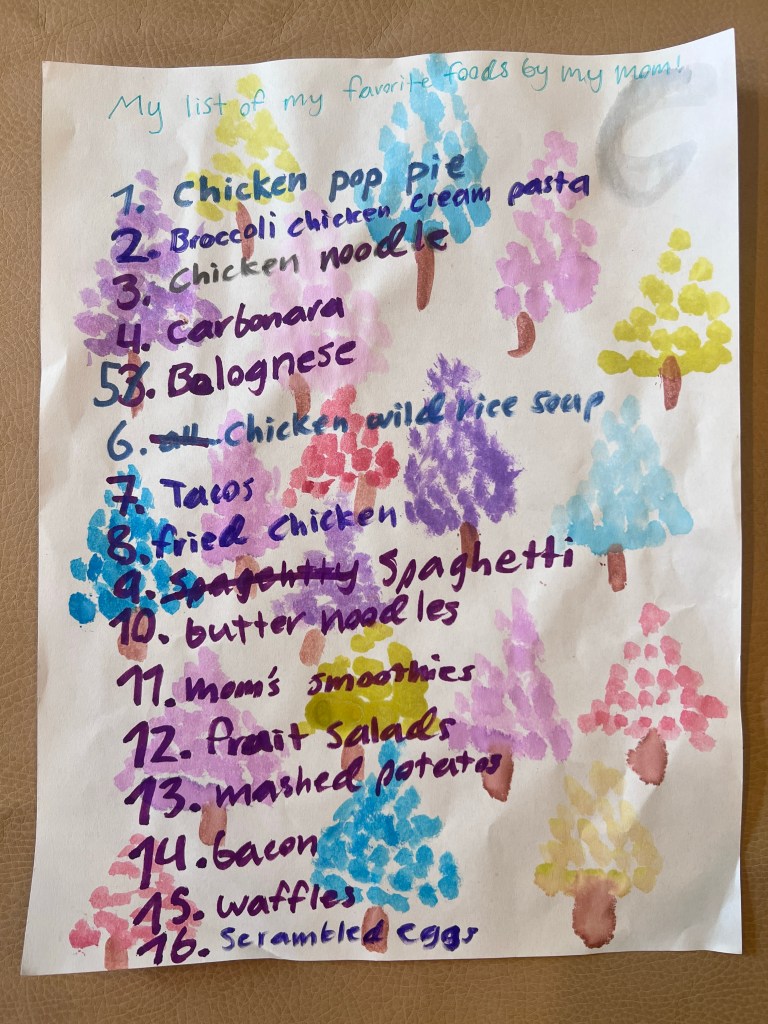 My list of my favorite foods by my mom!
1. Chicken pop pie
2. Broccoli chicken cream pasta
3. Chicken noodle
4. Carbonara
5. Bolognese
6. Chicken wild rice soup
7. Tacos
8. fried chicken
9. Spagehtty Spaghetti
10. butter noodles
11. mom's smoothies
12. fruit salads
13. mashed potatos
14. bacon
15. waffles
16. Scrambled eggs